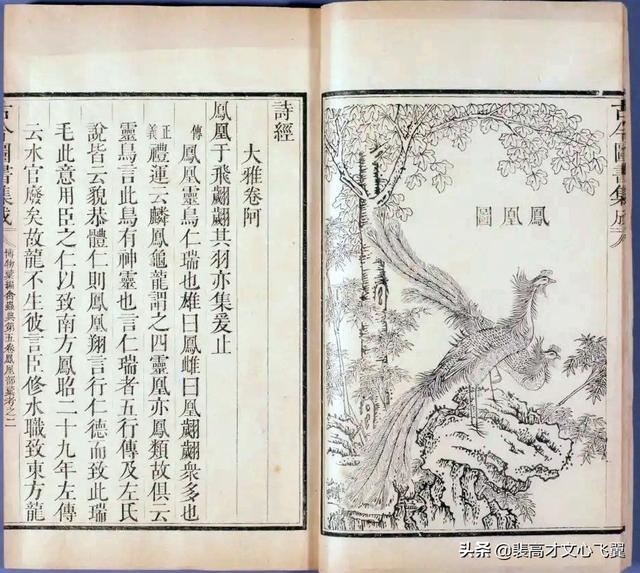 古今圖書集成
鳳凰圖
詩經
大雅卷阿
鳳凰于飛翽翽其羽亦集爰止
傳鳳凰靈鳥仁瑞也雄曰鳳雌曰凰翽翽衆多也
正義禮運云麟鳳龜龍謂之四靈凰亦鳳類故俱云
靈鳥言此鳥有神靈也言仁瑞者五行傳及左氏
說皆云貌恭體仁則鳳凰翔言行仁德而致此瑞
毛此意用臣之仁以致南方鳳昭二十九年左傳
云水官廢矣故龍不生彼言臣修水職致東方龍
古今圖書集成
博物彙編禽蟲典第五卷鳳凰部彙考之
头条 @裴高才文心飞翼